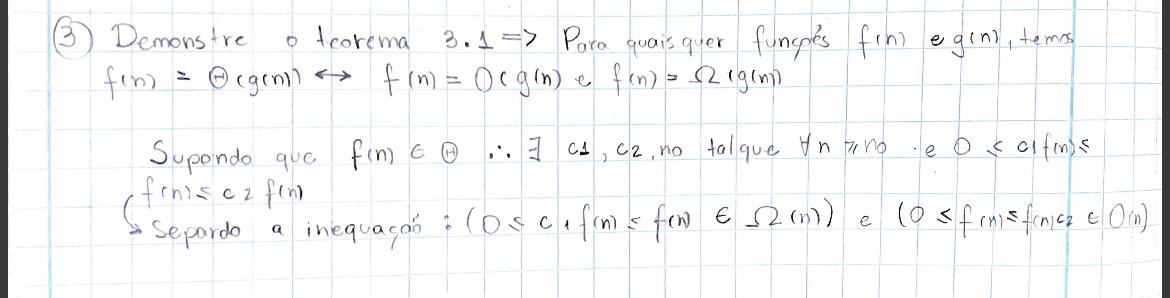 ③ Demonstre o teorema 3.1 => Para quaisquer funções f(n) e g(n), temos
f(n) = Θ(g(n)) ↔ f(n) = O(g(n) e f(n) = Ω(g(n))
Supondo que f(n) ∈ Θ ∴ ∃ c1, c2, no tal que ∀n ≥ no e 0 ≤ c1 f(n) ≤
f(n) ≤ c2 f(n)
↳ Separdo a inequação : (0 ≤ c1 f(n) ≤ f(n) ∈ Ω(n)) e (0 ≤ f(n) ≤ f(n)c2 ∈ O(n)